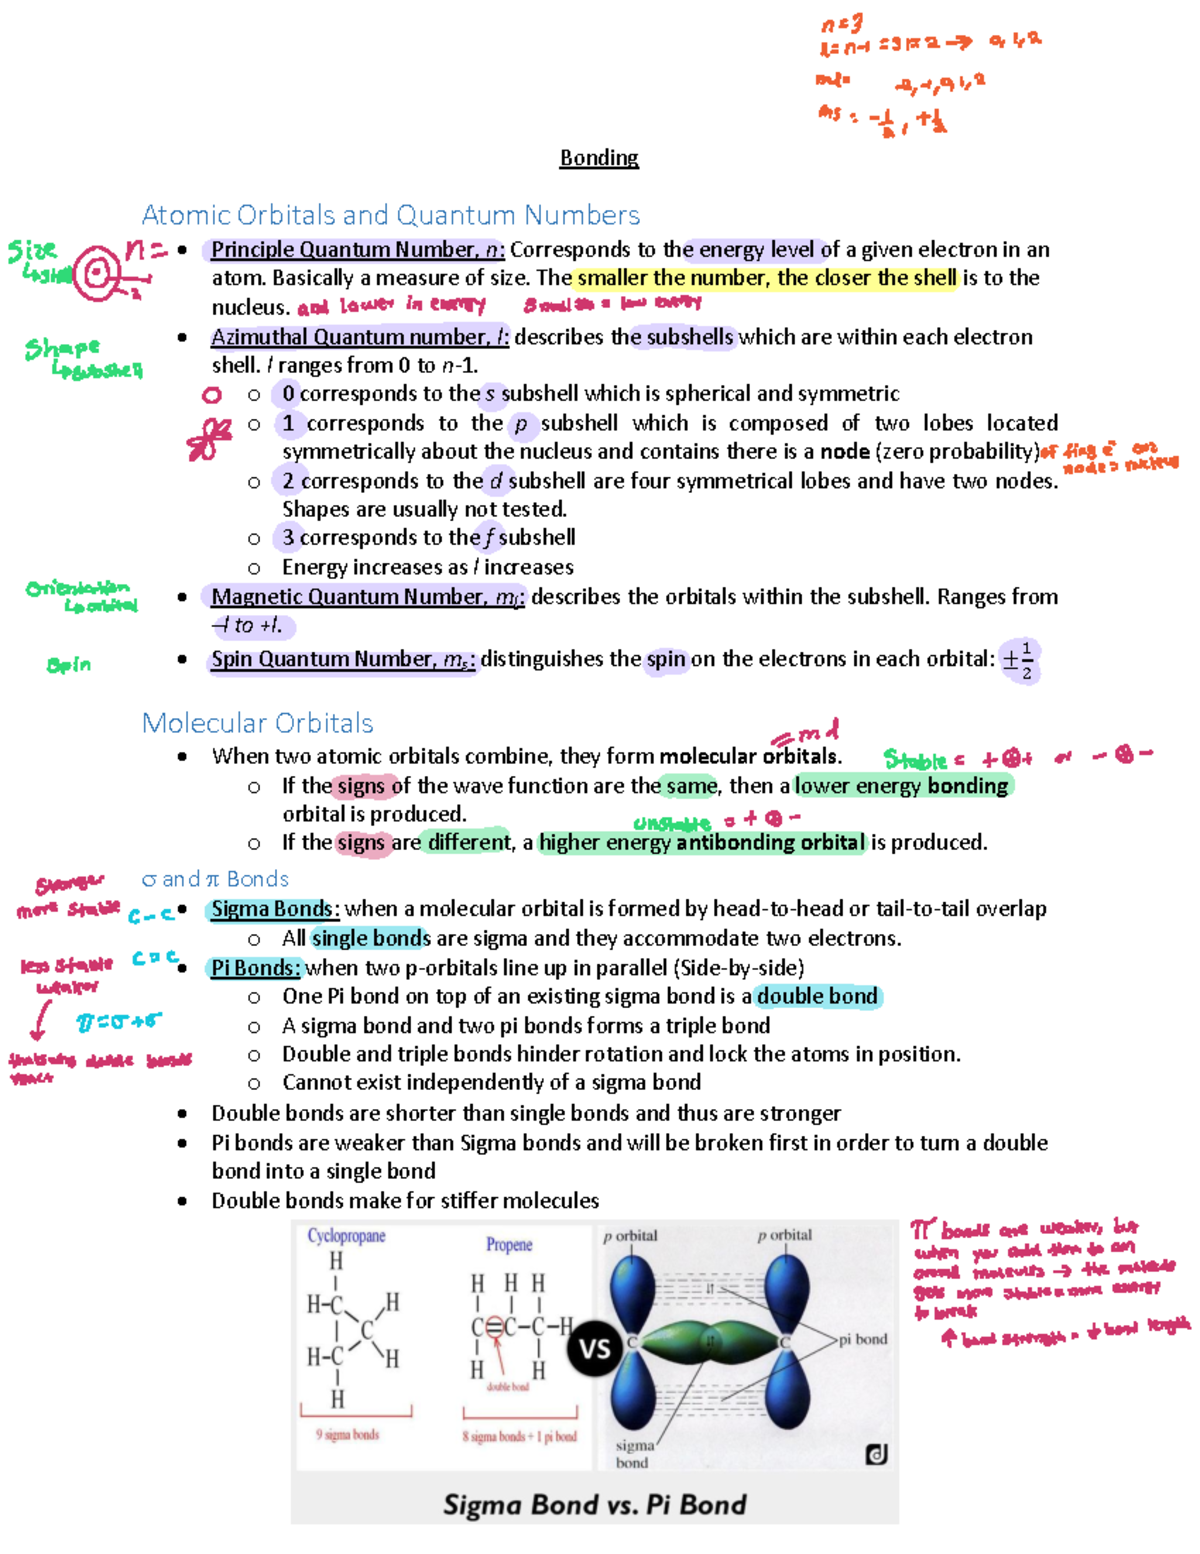 n=3
l=n-1 = 3-1= 2 → 0,1,2
ml= -2,-1,0,1,2
ms = -1/2, +1/2
Bonding
Atomic Orbitals and Quantum Numbers
Size
↳shell
n =
1
2
• Principle Quantum Number, n: Corresponds to the energy level of a given electron in an
atom. Basically a measure of size. The smaller the number, the closer the shell is to the
nucleus. and lower in energy smaller = low energy
Shape
↳subshell
• Azimuthal Quantum number, l: describes the subshells which are within each electron
shell. l ranges from 0 to n-1.
o 0 corresponds to the s subshell which is spherical and symmetric
o 1 corresponds to the p subshell which is composed of two lobes located
symmetrically about the nucleus and contains there is a node (zero probability) of fing e⁻ on
node = nucleus
o 2 corresponds to the d subshell are four symmetrical lobes and have two nodes.
Shapes are usually not tested.
o 3 corresponds to the f subshell
o Energy increases as l increases
Orientation
↳orbital
• Magnetic Quantum Number, ml: describes the orbitals within the subshell. Ranges from
–l to +l.
Spin
• Spin Quantum Number, ms: distinguishes the spin on the electrons in each orbital: ±1/2
Molecular Orbitals
• When two atomic orbitals combine, they form molecular orbitals.
Stable = + ⊕ + or - ⊕ -
o If the signs of the wave function are the same, then a lower energy bonding
orbital is produced.
unstable = + ⊕ -
o If the signs are different, a higher energy antibonding orbital is produced.
σ and π Bonds
Stronger
more stable
C-C
• Sigma Bonds: when a molecular orbital is formed by head-to-head or tail-to-tail overlap
o All single bonds are sigma and they accommodate two electrons.
less stable
weaker
C=C
• Pi Bonds: when two p-orbitals line up in parallel (Side-by-side)
o One Pi bond on top of an existing sigma bond is a double bond
π=σ+σ
o A sigma bond and two pi bonds forms a triple bond
thats why double bonds
react
o Double and triple bonds hinder rotation and lock the atoms in position.
o Cannot exist independently of a sigma bond
• Double bonds are shorter than single bonds and thus are stronger
• Pi bonds are weaker than Sigma bonds and will be broken first in order to turn a double
bond into a single bond
• Double bonds make for stiffer molecules
Cyclopropane
H
H-C H
C
H-C H
H
9 sigma bonds
Propene
H H H
C=C-C-H
H H
double bond
8 sigma bonds + 1 pi bond
VS
p orbital
p orbital
C
C
pi bond
sigma
bond
d
Sigma Bond vs. Pi Bond
π bonds are weaker, but
when you add them to an
overall molecules → the molecule
gets more stable = more energy
to break
↑ bond strength = ↓ bond length